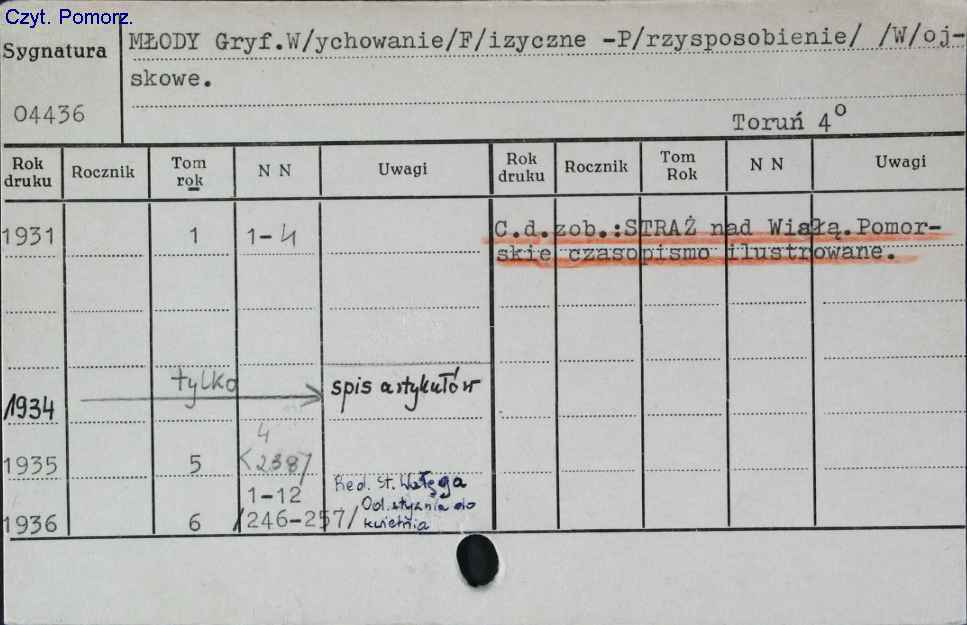 Czyt. Pomorz.
Sygnatura
MŁODY Gryf.W/ychowanie/F/izyczne -P/rzysposobienie/ /W/oj-
skowe.
04436
Toruń 4º
Rok druku Rocznik Tom rok N N Uwagi Rok druku Rocznik Tom Rok N N Uwagi
1931 1 1-4 C.d.zob.:STRAŻ nad Wisłą.Pomor-
skie czasopismo ilustrowane.
1934 tylko spis artykułów
4
1935 5 <238>
Red. St. Wałęga
1-12
Od stycznia do
1936 6 /246-257/ kwietnia